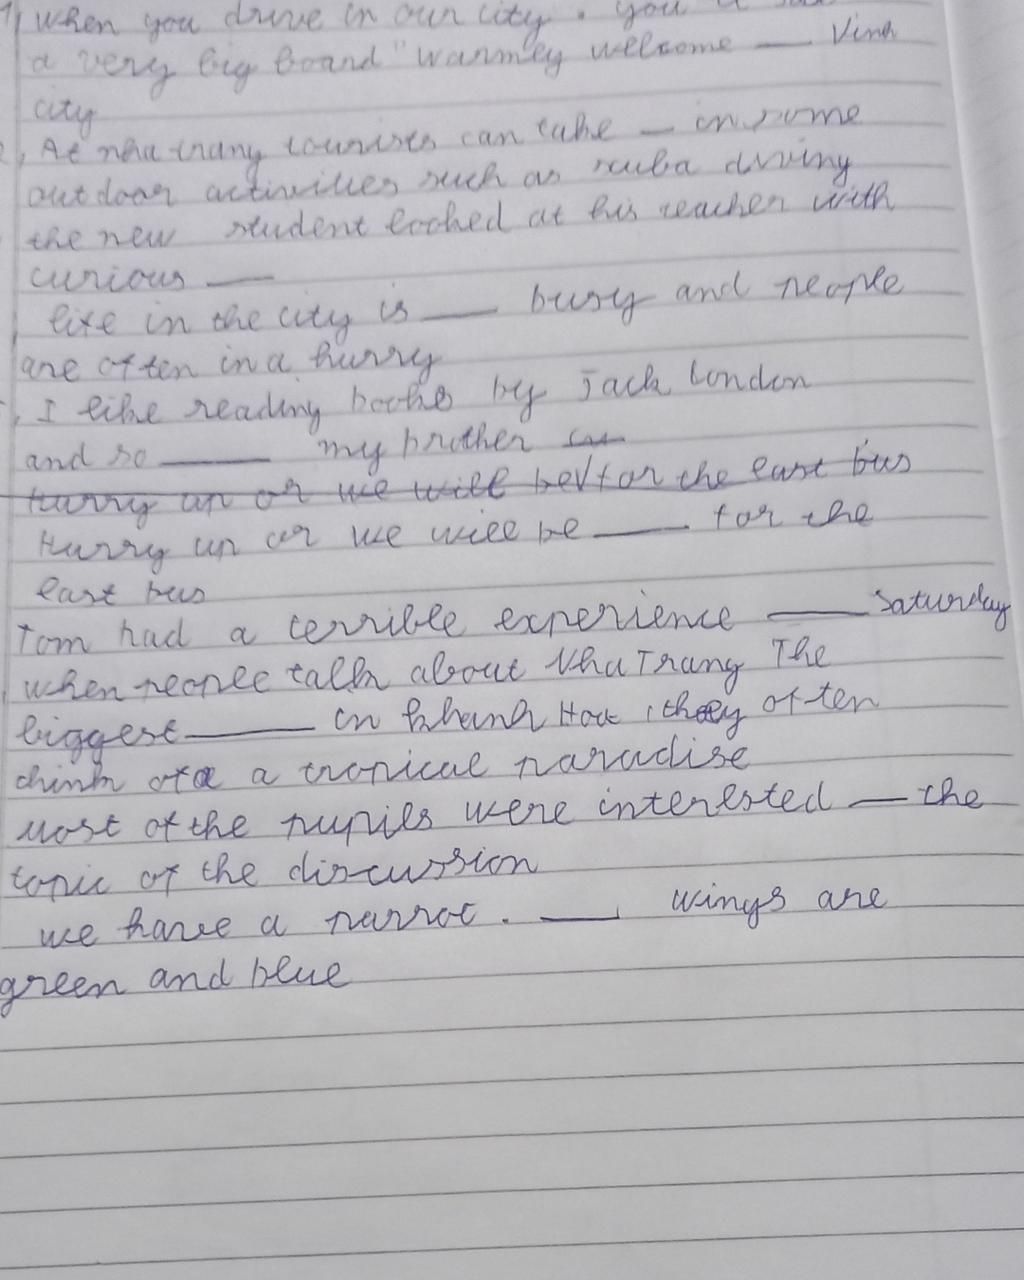 1, when you drive in our city. you
a very big board "warmly welcome ___ Vinh
city
, At nha trang tourists can take _ in some
outdoor activities such as scuba driving
the new student looked at his teacher with
curious ___
life in the city is ___ busy and people
are often in a hurry
, I like reading books by Jack London
and so ___ my brother
Hurry up or we will be for the last bus
Hurry up or we will be ___ for the
last bus
Tom had a terrible experience ___ Saturday
, when people talk about Nha Trang The
biggest ___ in khanh Hoa , they often
think of a tropical paradise
most of the pupils were interested _ the
topic of the discussion
we have a parrot . ___ wings are
green and blue